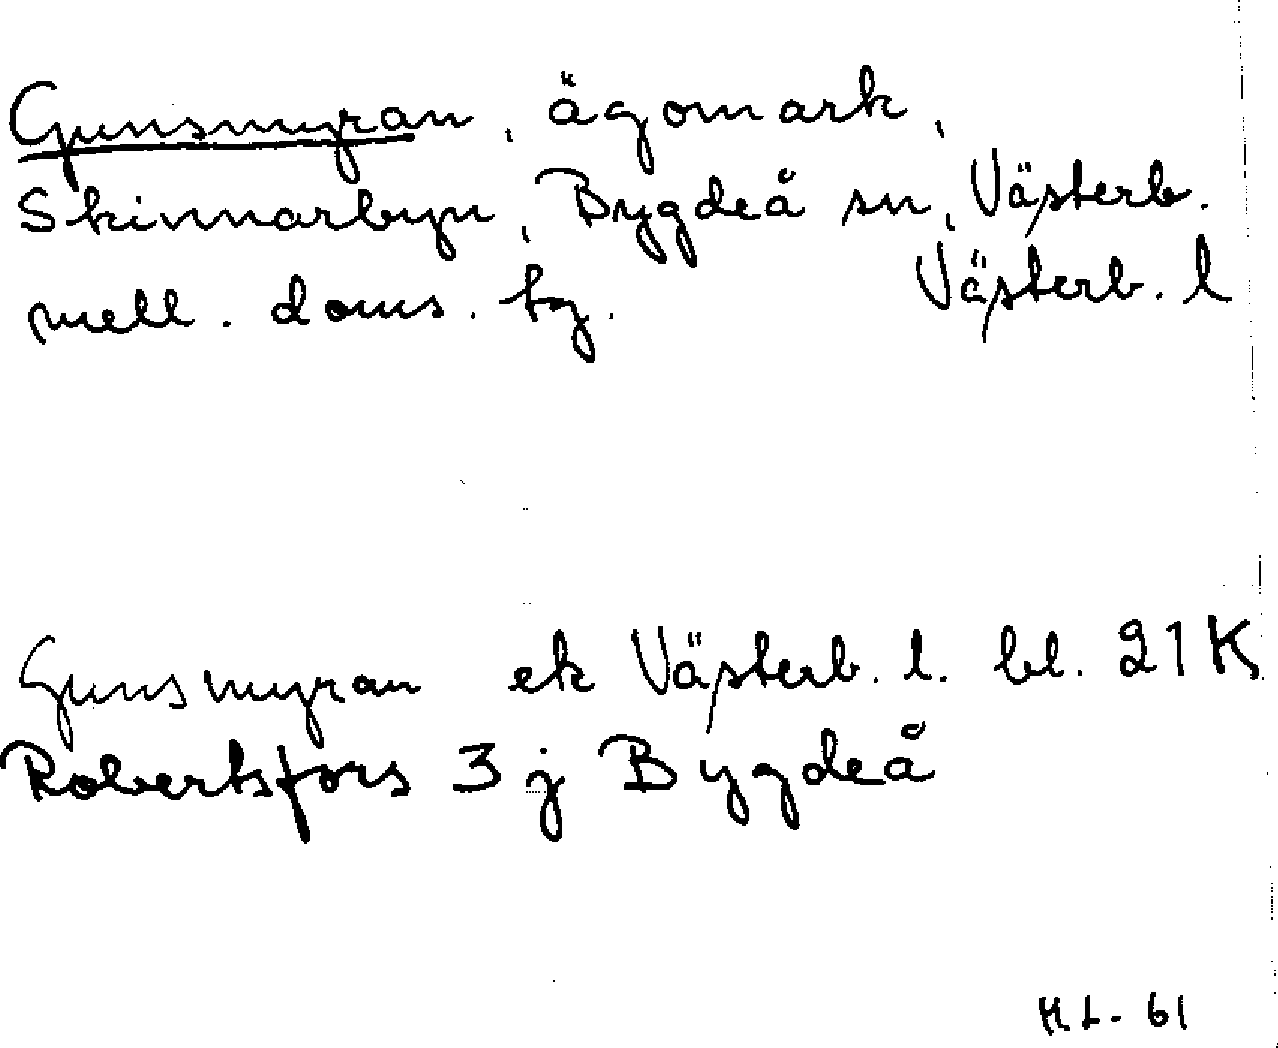 Gunsmyran, ägomark,
Skinnarbyn, Bygdeå sn, Västerb.
mell. doms. tg. Västerb. l
Gunsmyran ek Västerb. l. bl. 21K
Robertsfors 3j Bygdeå
HL-61